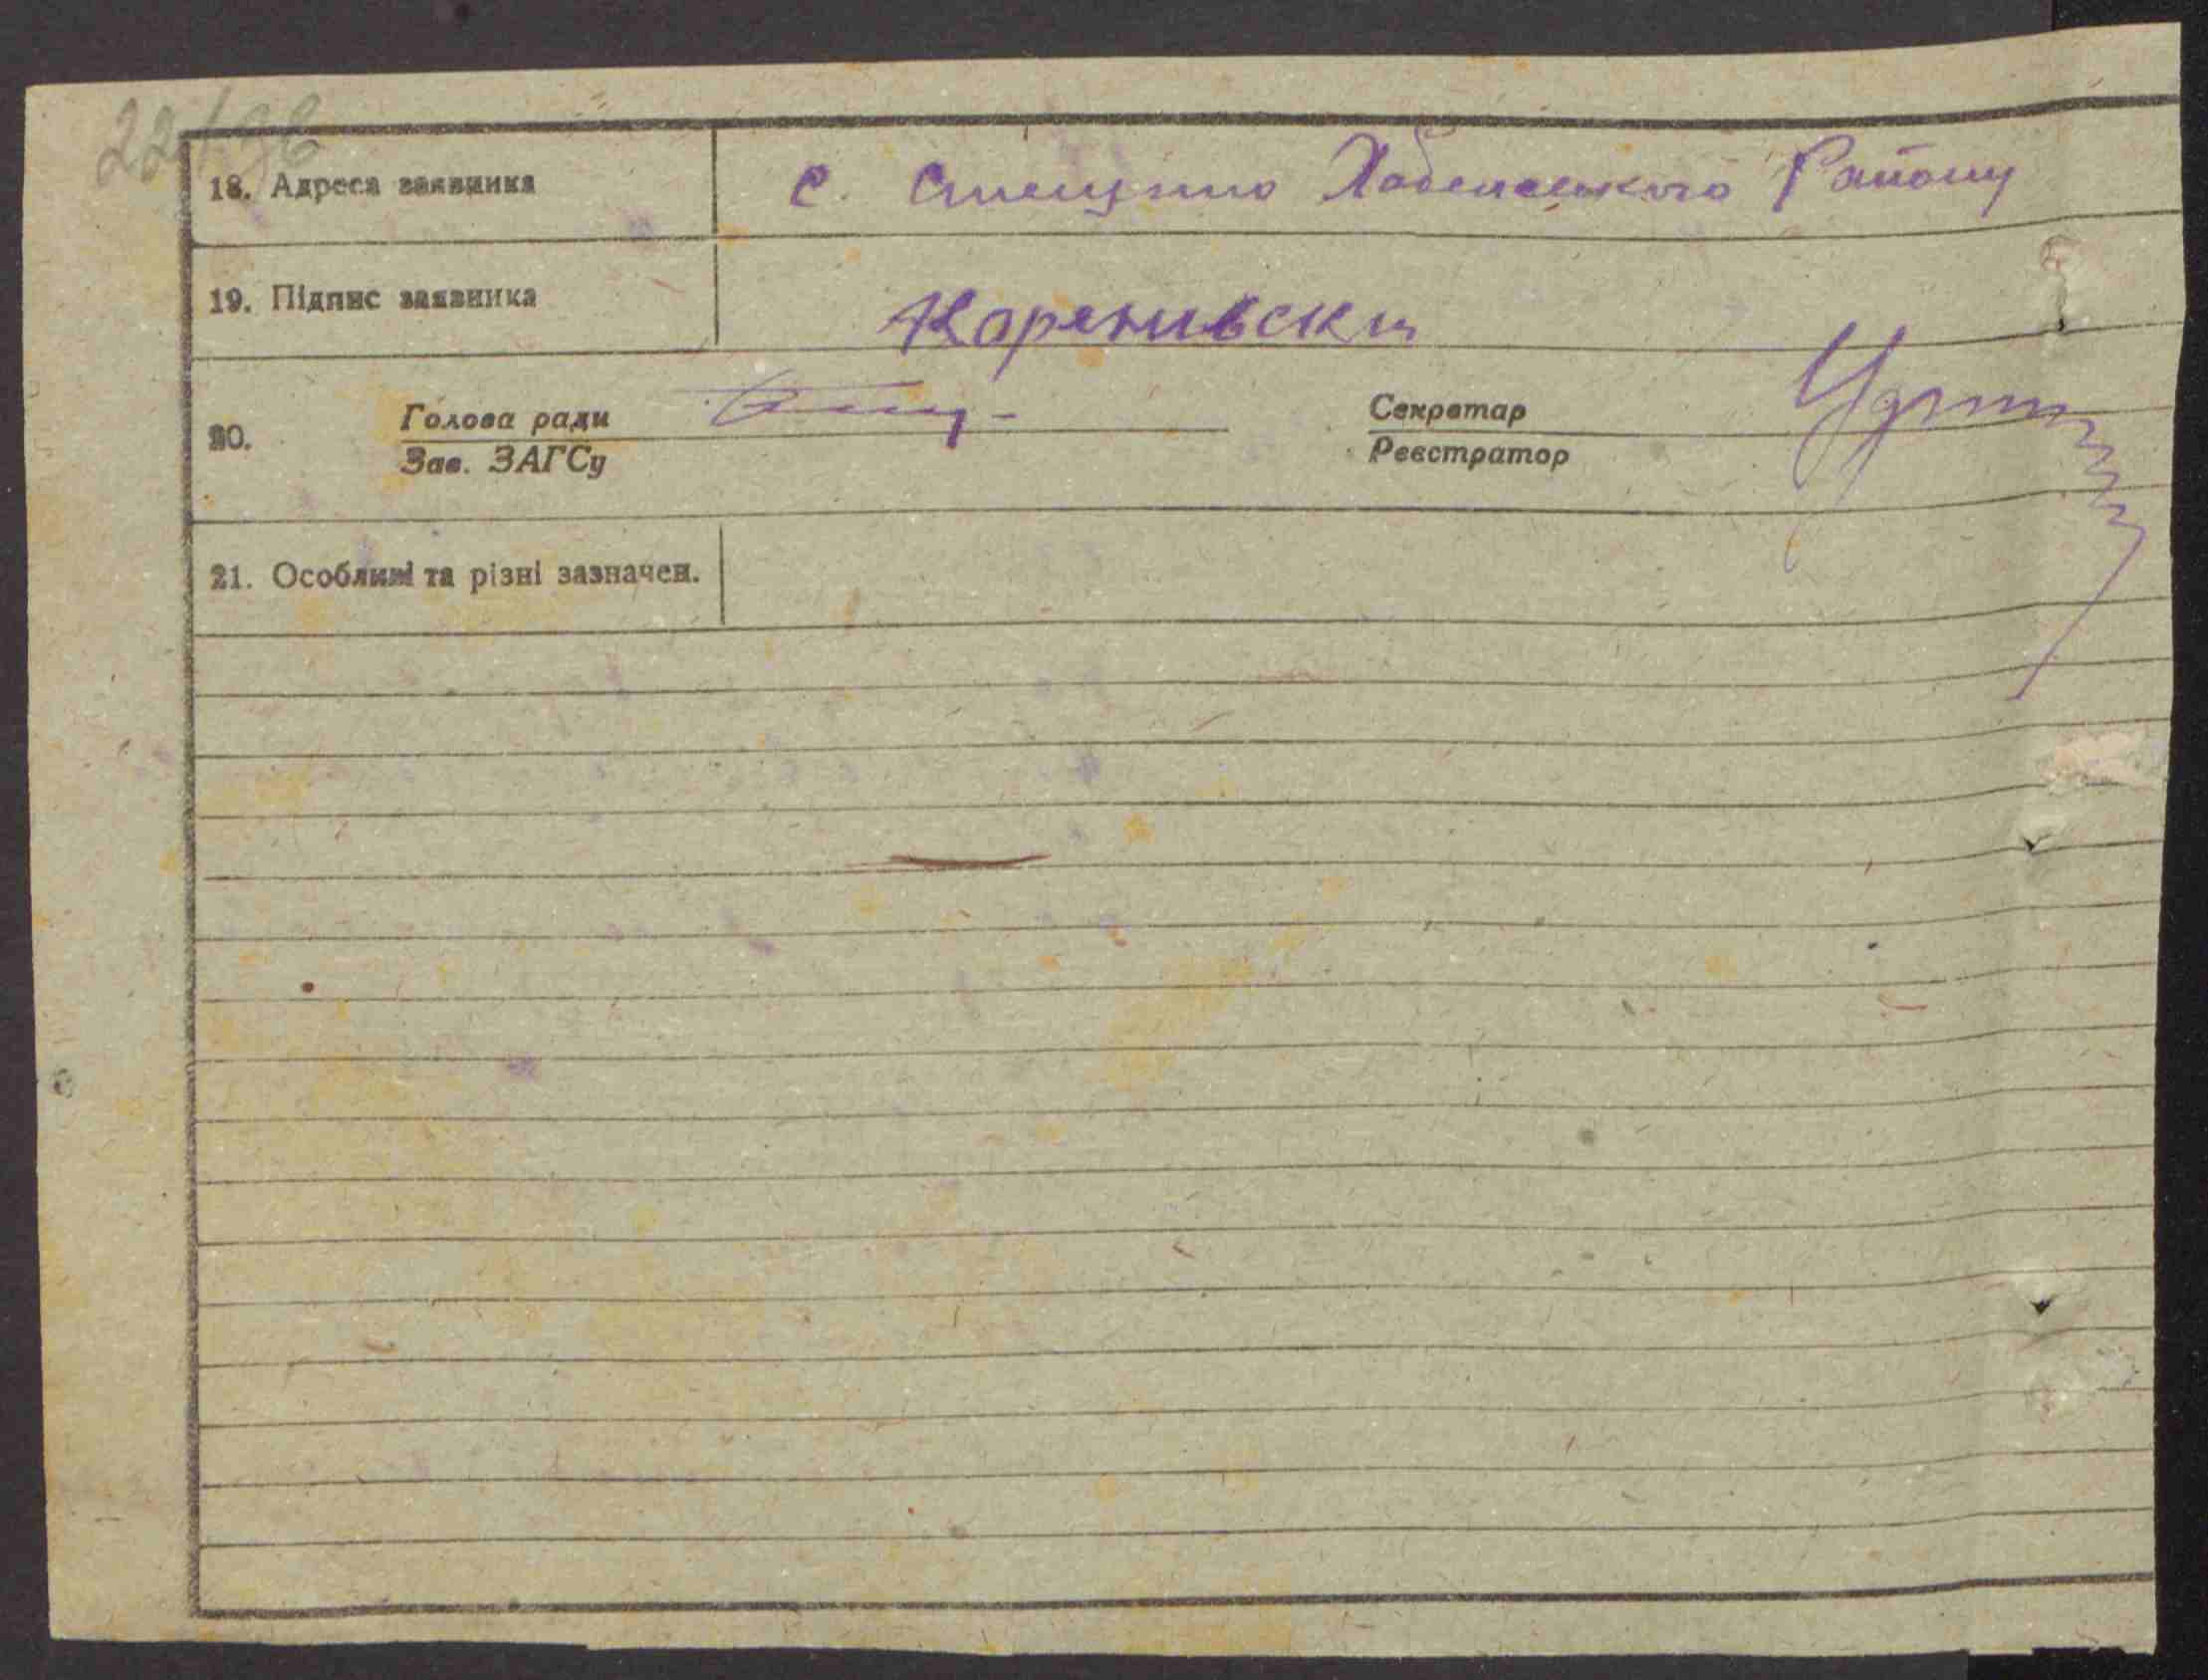 18. Адреса заявника с. Стещино Хабенського Району
19. Підпис заявника Каренивски
20. Голова ради Секретар
Зав. ЗАГСу Реєстратор
21. Особливі та різні зазначен.